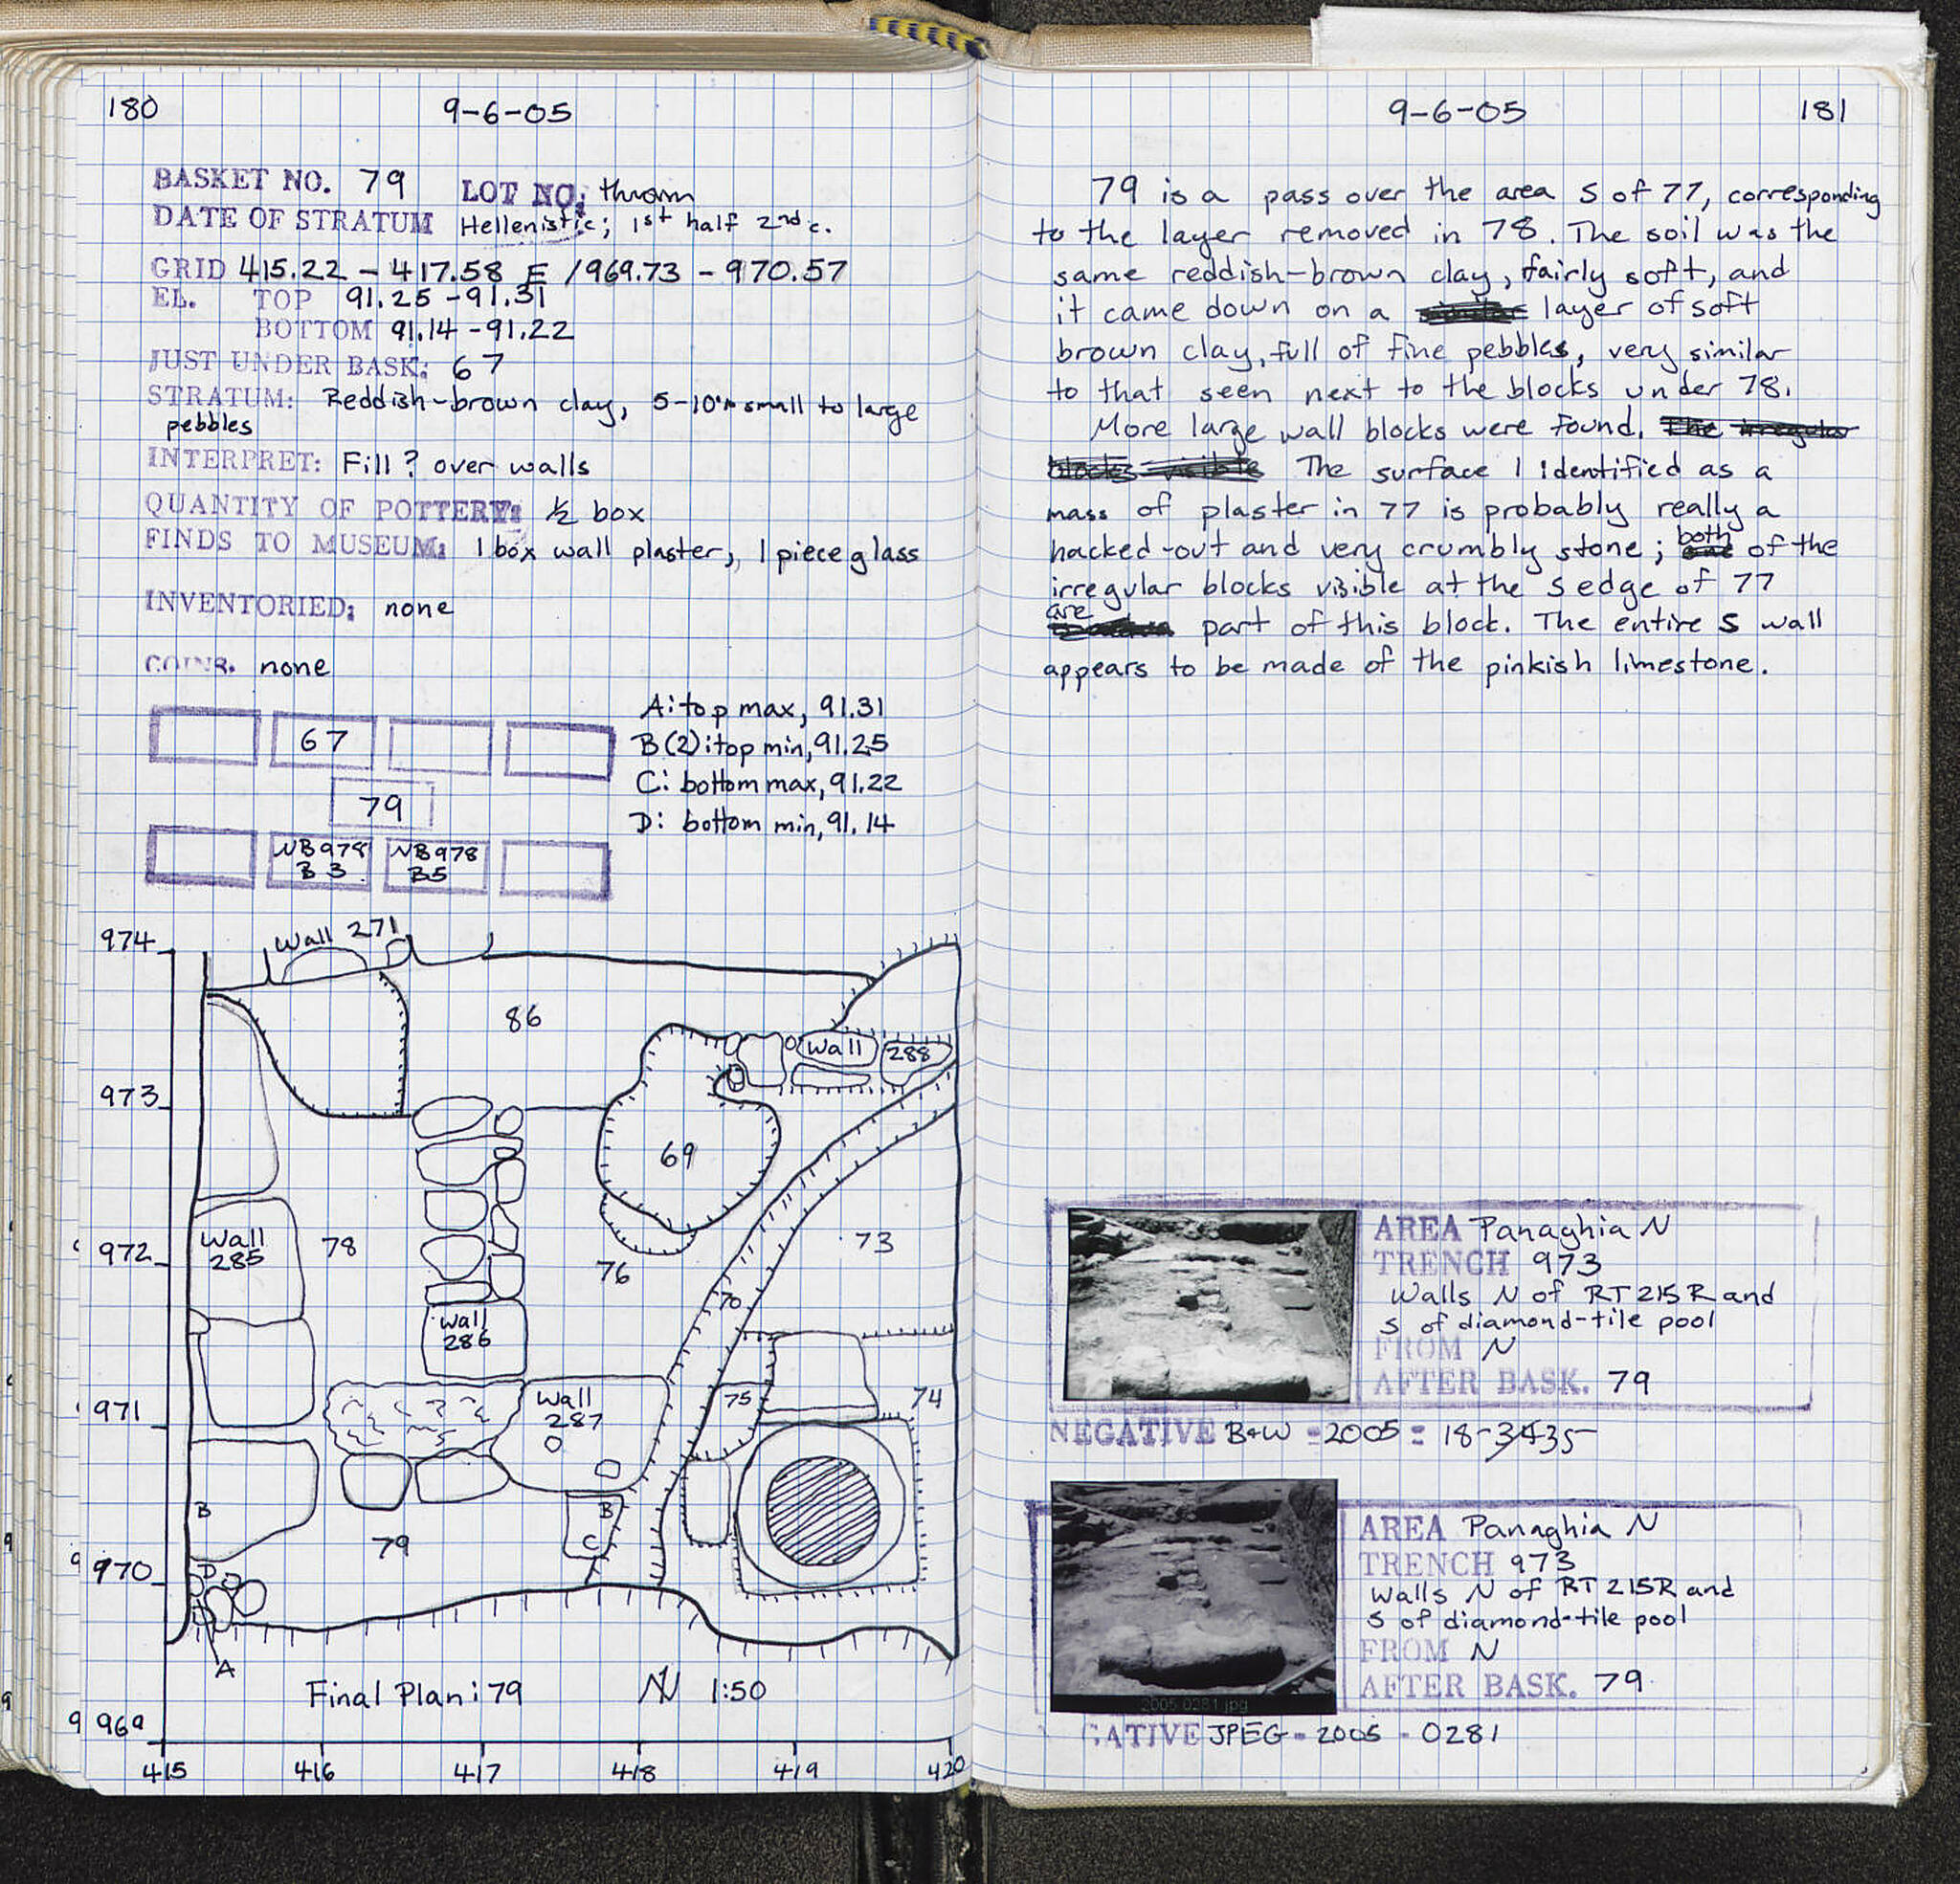 180
9-6-05
BASKET NO. 79 LOT NO: thrown
DATE OF STRATUM Hellenistic; 1st half 2nd c.
GRID 415.22 - 417.58 E / 969.73 - 970.57
EL. TOP 91.25 - 91.31
BOTTOM 91.14 - 91.22
JUST UNDER BASK: 67
STRATUM: Reddish-brown clay, 5-10% small to large
pebbles
INTERPRET: Fill? over walls
QUANTITY OF POTTERY: ½ box
FINDS TO MUSEUM: 1 box wall plaster, 1 piece glass
INVENTORIED: none
COINS. none
67
79
NB978
B3
NB978
B5
A: top max, 91.31
B(2): top min, 91.25
C: bottom max, 91.22
D: bottom min, 91.14
974
973
972
971
970
969
Wall 271
86
Wall
288
69
Wall
285
78
76
73
70
Wall
286
Wall
287
75
74
B
B
C
79
D
A
Final Plan: 79 N 1:50
415 416 417 418 419 420
9-6-05
181
79 is a pass over the area S of 77, corresponding
to the layer removed in 78. The soil was the
same reddish-brown clay, fairly soft, and
it came down on a layer of soft
brown clay, full of fine pebbles, very similar
to that seen next to the blocks under 78.
More large wall blocks were found. The irregular
blocks visible The surface I identified as a
mass of plaster in 77 is probably really a
hacked-out and very crumbly stone; both of the
irregular blocks visible at the S edge of 77
are part of this block. The entire S wall
appears to be made of the pinkish limestone.
AREA Panaghia N
TRENCH 973
Walls N of RT 215R and
S of diamond-tile pool
FROM N
AFTER BASK. 79
NEGATIVE B+W - 2005 - 18-3435
AREA Panaghia N
TRENCH 973
Walls N of RT 215R and
S of diamond-tile pool
FROM N
AFTER BASK. 79
2005 0281.jpg
GATIVE JPEG - 2005 - 0281